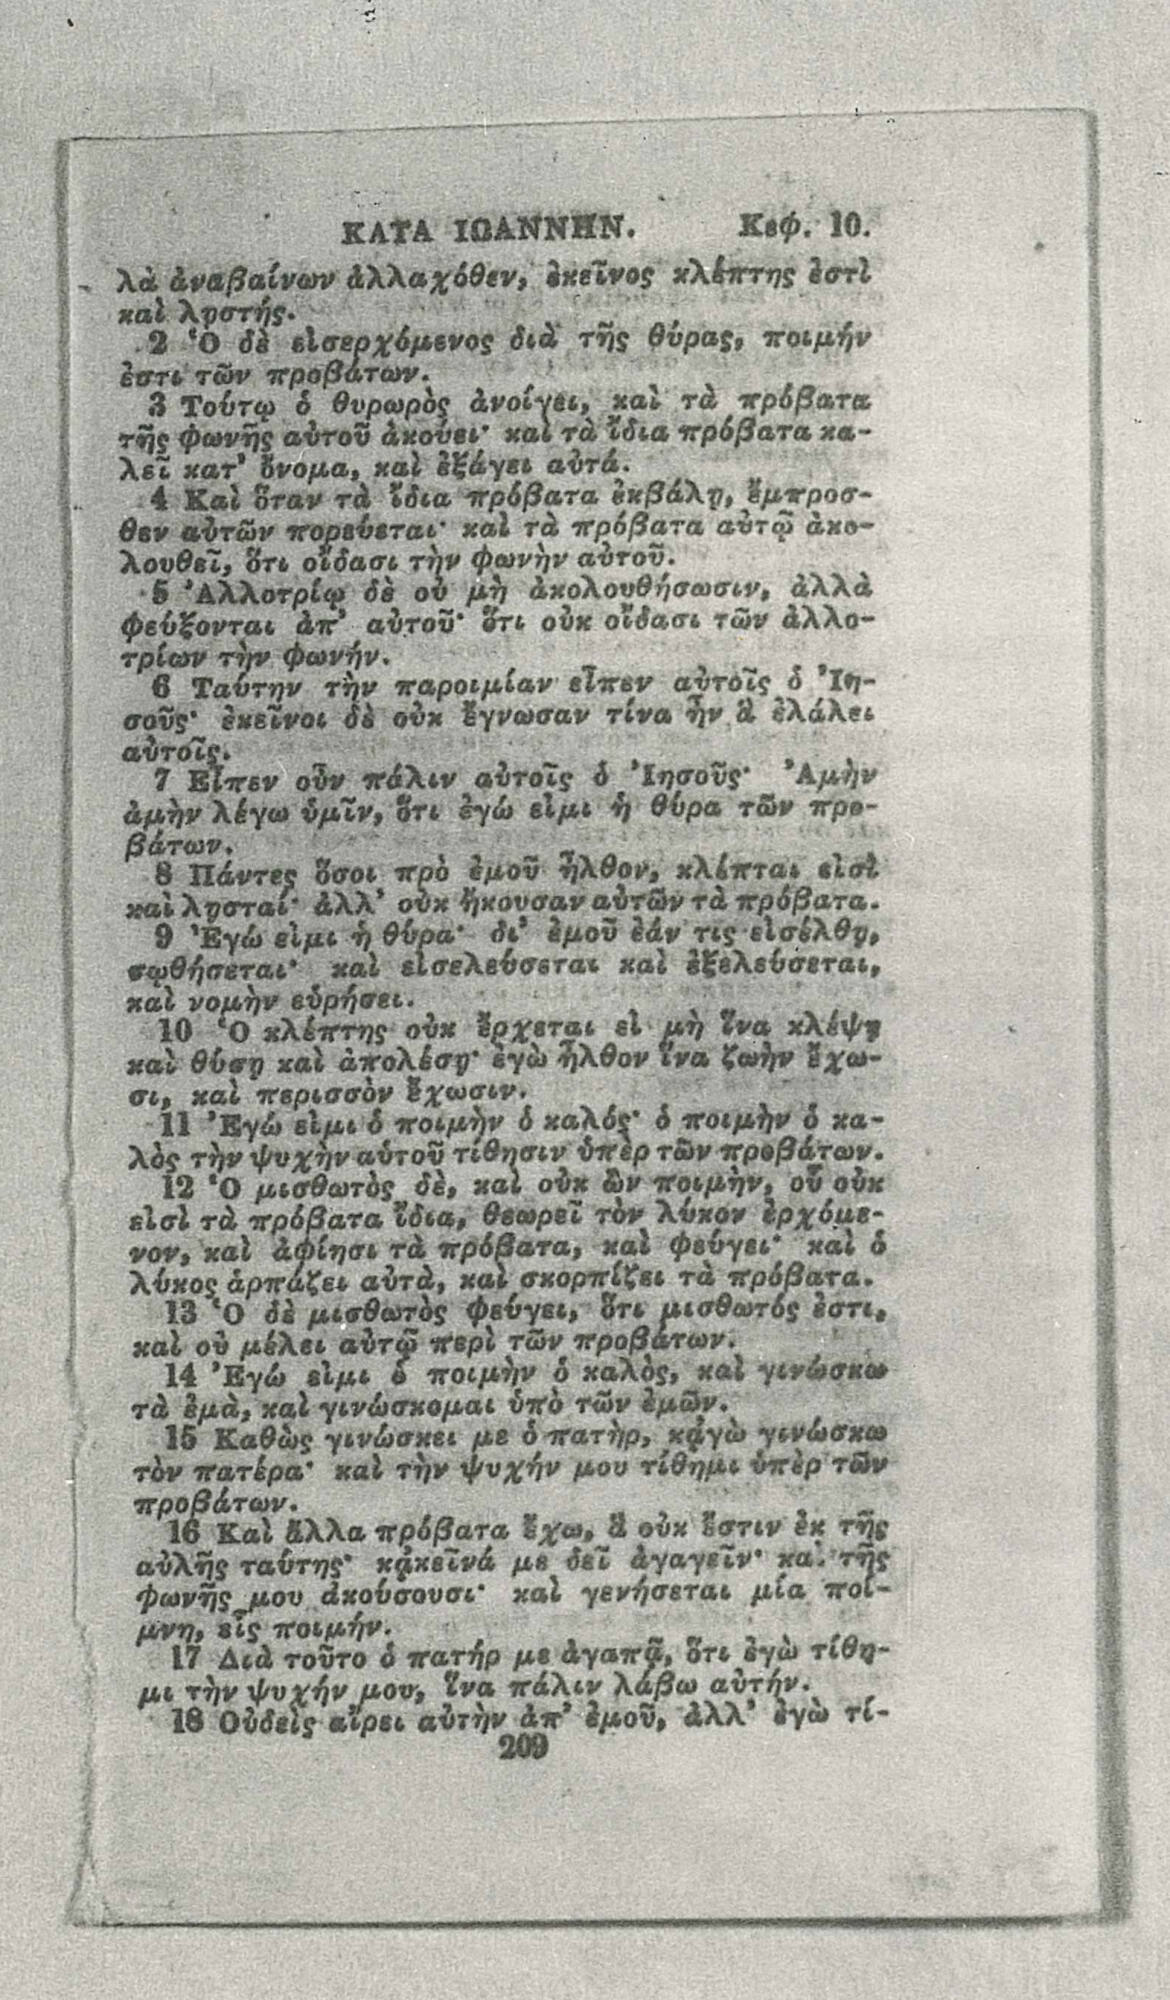 ΚΑΤΑ ΙΩΑΝΝΗΝ. Κεφ. 10.
λὰ ἀναβαίνων ἀλλαχόθεν, ἐκεῖνος κλέπτης ἐστὶ
καὶ λῃστής.
2 Ὁ δὲ εἰσερχόμενος διὰ τῆς θύρας, ποιμήν
ἐστι τῶν προβάτων.
3 Τούτῳ ὁ θυρωρὸς ἀνοίγει, καὶ τὰ πρόβατα
τῆς φωνῆς αὐτοῦ ἀκούει· καὶ τὰ ἴδια πρόβατα κα-
λεῖ κατ’ ὄνομα, καὶ ἐξάγει αὐτά.
4 Καὶ ὅταν τὰ ἴδια πρόβατα ἐκβάλῃ, ἔμπροσ-
θεν αὐτῶν πορεύεται· καὶ τὰ πρόβατα αὐτῷ ἀκο-
λουθεῖ, ὅτι οἴδασι τὴν φωνὴν αὐτοῦ.
5 Ἀλλοτρίῳ δὲ οὐ μὴ ἀκολουθήσωσιν, ἀλλὰ
φεύξονται ἀπ’ αὐτοῦ· ὅτι οὐκ οἴδασι τῶν ἀλλο-
τρίων τὴν φωνήν.
6 Ταύτην τὴν παροιμίαν εἶπεν αὐτοῖς ὁ Ἰη-
σοῦς· ἐκεῖνοι δὲ οὐκ ἔγνωσαν τίνα ἦν ἃ ἐλάλει
αὐτοῖς.
7 Εἶπεν οὖν πάλιν αὐτοῖς ὁ Ἰησοῦς· Ἀμὴν
ἀμὴν λέγω ὑμῖν, ὅτι ἐγώ εἰμι ἡ θύρα τῶν προ-
βάτων.
8 Πάντες ὅσοι πρὸ ἐμοῦ ἦλθον, κλέπται εἰσὶ
καὶ λῃσταί· ἀλλ’ οὐκ ἤκουσαν αὐτῶν τὰ πρόβατα.
9 Ἐγώ εἰμι ἡ θύρα· δι’ ἐμοῦ ἐάν τις εἰσέλθῃ,
σωθήσεται· καὶ εἰσελεύσεται καὶ ἐξελεύσεται,
καὶ νομὴν εὑρήσει.
10 Ὁ κλέπτης οὐκ ἔρχεται εἰ μὴ ἵνα κλέψῃ
καὶ θύσῃ καὶ ἀπολέσῃ· ἐγὼ ἦλθον ἵνα ζωὴν ἔχω-
σι, καὶ περισσὸν ἔχωσιν.
11 Ἐγώ εἰμι ὁ ποιμὴν ὁ καλός· ὁ ποιμὴν ὁ κα-
λὸς τὴν ψυχὴν αὑτοῦ τίθησιν ὑπὲρ τῶν προβάτων.
12 Ὁ μισθωτὸς δὲ, καὶ οὐκ ὢν ποιμὴν, οὗ οὐκ
εἰσὶ τὰ πρόβατα ἴδια, θεωρεῖ τὸν λύκον ἐρχόμε-
νον, καὶ ἀφίησι τὰ πρόβατα, καὶ φεύγει· καὶ ὁ
λύκος ἁρπάζει αὐτὰ, καὶ σκορπίζει τὰ πρόβατα.
13 Ὁ δὲ μισθωτὸς φεύγει, ὅτι μισθωτός ἐστι,
καὶ οὐ μέλει αὐτῷ περὶ τῶν προβάτων.
14 Ἐγώ εἰμι ὁ ποιμὴν ὁ καλὸς, καὶ γινώσκω
τὰ ἐμὰ, καὶ γινώσκομαι ὑπὸ τῶν ἐμῶν.
15 Καθὼς γινώσκει με ὁ πατὴρ, κᾀγὼ γινώσκω
τὸν πατέρα· καὶ τὴν ψυχήν μου τίθημι ὑπὲρ τῶν
προβάτων.
16 Καὶ ἄλλα πρόβατα ἔχω, ἃ οὐκ ἔστιν ἐκ τῆς
αὐλῆς ταύτης· κᾀκεῖνά με δεῖ ἀγαγεῖν· καὶ τῆς
φωνῆς μου ἀκούσουσι· καὶ γενήσεται μία ποί-
μνη, εἷς ποιμήν.
17 Διὰ τοῦτο ὁ πατήρ με ἀγαπᾷ, ὅτι ἐγὼ τίθη-
μι τὴν ψυχήν μου, ἵνα πάλιν λάβω αὐτήν.
18 Οὐδεὶς αἴρει αὐτὴν ἀπ’ ἐμοῦ, ἀλλ’ ἐγὼ τί-
209